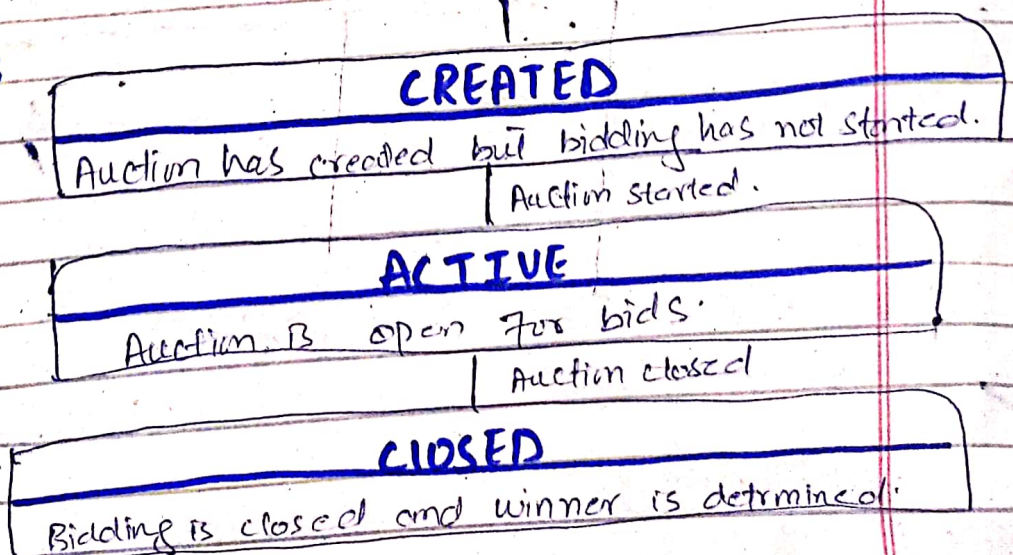 CREATED
Auction has created but bidding has not started.
Auction started.
ACTIVE
Auction is open for bids.
Auction closed
CLOSED
Bidding is closed and winner is detrmined.